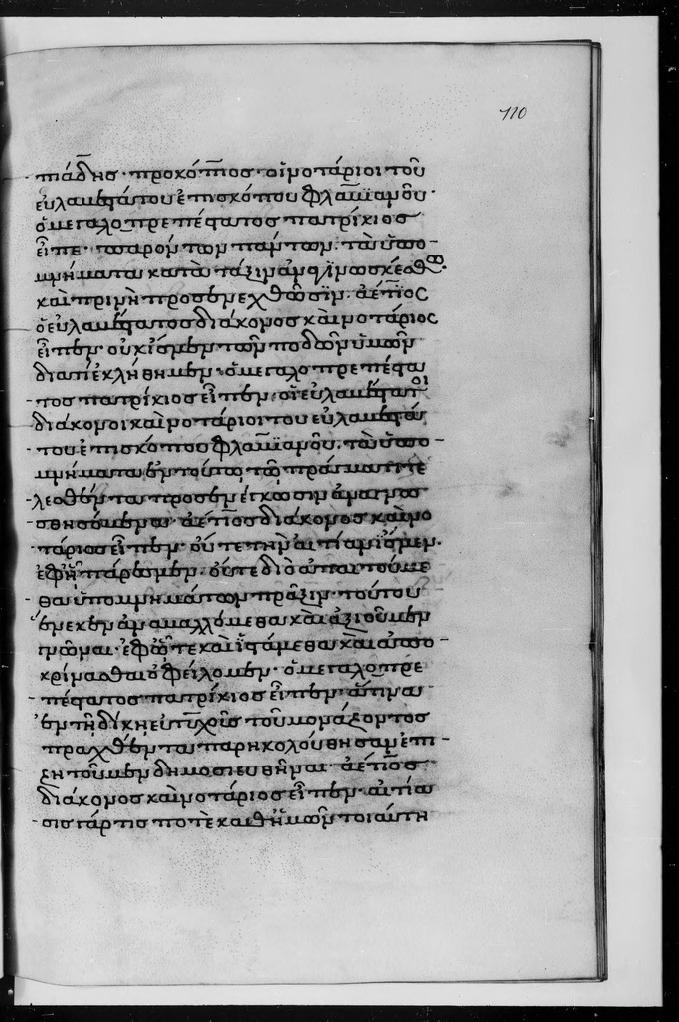 110
πιάδης· προκόπιος· οἱ νοτάριοι τοῦ
εὐλαβεστάτου ἐπισκόπου φλαϊανοῦ·
ὁ μεγαλοπρεπέστατος πατρίκιος
εἶπε· παρόντων πάντων, τὰ ὑπο-
μνήματα κατὰ τάξιν ἀναγινωσκέσθω·
καὶ πρινὴ προσενεχθῶσϊν· ἀέτϊος
ὁ εὐλαβέστατος διάκονος καὶ νοτάριος
εἶπεν· οὐκ ἴσμεν τῶν ποδῶν ὑμῶν
διατί ἐκλήθημεν· ὁ μεγαλοπρεπέστα
τος πατρίκιος εἶπεν· οἱ εὐλαβέστατοι
διάκονοι καὶ νοτάριοι του εὐλαβεστά
του ἐπισκόπου φλαϊανοῦ, τὰ ὑπο-
μνήματα ἐν τούτῳ τῷ πράγματι τε
λεσθέντα προσενέγκωσιν ἀναγνω
σθησόμενα· ἀέτιος διάκονος καὶ νο
τάριος εἶπεν· οὔτε τὴν αἰτίαν ἴσμεν.
ἐφ' ἣν πάρεσμεν· οὔτε διὸ ἀπαιτούμε
θα ὑπομνημάτων πρᾶξιν· τούτου
ἕνεκεν ἀναβαλλόμεθα καὶ ἀξιοῦμεν
γνῶναι· ἐφ' ᾧ τε καὶ ἱστάμεθα καὶ ἀπο-
κρίνασθαι ὀφείλομεν· ὁ μεγαλοπρε
πέστατος πατρίκιος εἶπεν· ἅτινα
ἐν τῇ δίκῃ εὐτυχοῦς τοῦ μονάζοντος
πραχθέντα παρηκολούθησαν ἐπι-
ζητοῦμεν δημοσιευθῆναι· ἀέτιος
διάκονος καὶ νοτάριος εἶπεν· αἰτία
σις γάρ τις ποτὲ καθ' ἡμῶν τοιαύτη